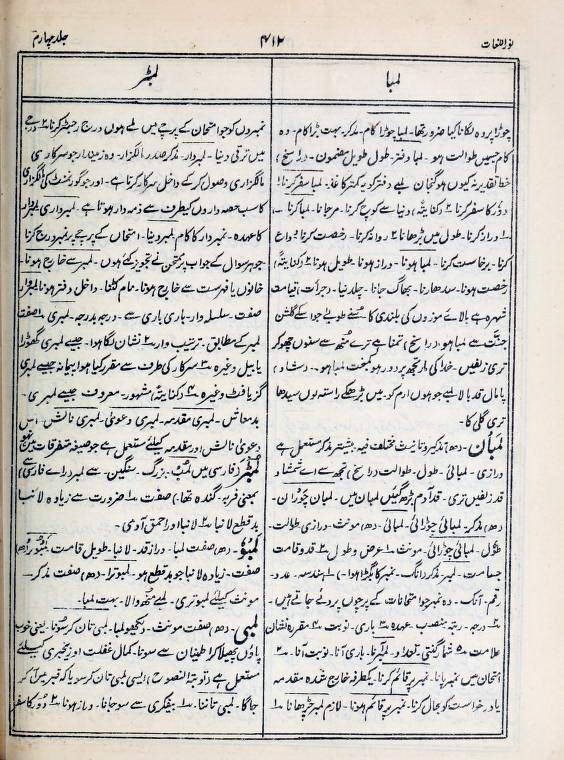 نوراللغات
۴۱۲
جلد چہارم
لمبا
لمبٹر
چوڑا پردہ لگانا کیا ضرور تھا۔ لمبا چوڑا کام۔ مذکر۔ بہت بڑا کام۔ وہ
کام جس میں طوالت ہو۔ لمبا دفتر۔ طول طویل مضمون۔ (راسخ)
خط تقدیر نہ کیوں ہو گنجان لمبے دفتر کو یہ کمتر کاغذ۔ لمبا سفر کرنا۔ ۱
دور کا سفر کرنا ۲ (کنایۃً) دنیا سے کوچ کرنا۔ مرجانا۔ لمبا کرنا۔
۱۔ دراز کرنا۔ طول میں بڑھانا ۲ روانہ کرنا۔ رخصت کرنا ۳ وداع
کرنا۔ برخاست کرنا۔ لمبا ہونا۔ دراز ہونا۔ طویل ہونا ۲ (کنایۃً)
رخصت ہونا۔ سدھارنا۔ بھاگ جانا۔ چلدینا۔ (جرأت) قیامت
شہرہ ہے بالائے موزوں کی بلندی کا سنے طوبے جو اسکے گلشن
جنّت سے لمبا ہو۔ (راسخ) تمنا ہے ترے منہ سے سنوں چھو کر
تری زلفیں۔ خدا کی مار تجھ پر دور ہو کمبخت لمبا ہو۔ (شاد)
پامال قد بالا لیے جو ہوں ارم کو میں بڑھ کے راستہ یوں سیدھا
تری گلی کا۔
لمبان۔ (ھ) تذکیر و تانیث مختلف فیہ۔ بیشتر مذکر مستعمل ہے
درازی۔ لمبائی۔ طول۔ طوالت (راسخ) تجھ سے اے شمشاد
قد زلفیں تری۔ قد آدم بڑھ گئیں لمبان میں۔ لمبان چوڑان۔
(ھ) مذکر۔ لمبائی چوڑائی۔ لمبائی۔ (ھ) مونث۔ درازی طوالت۔
طول۔ لمبائی چوڑائی۔ مونث ۱ عرض و طول ۲ قد و قامت
جسامت۔ لمبر۔ مذکر (انگ۔ نمبر کا بگڑا ہوا) ۱۔ ہندسہ۔ عدد
رقم۔ آنک۔ وہ نمبر جو امتحانات کے پرچوں پر دئے جاتے ہیں۔
۲ درجہ۔ رتبہ منصب۔ عہدہ ۳ باری۔ نوبت ۴ مقررہ نشان
علامت ۵ شمار گنتی۔ تعداد۔ لمبر آنا۔ باری آنا۔ نوبت آنا۔ ۲
امتحان میں نمبر پانا۔ نمبر پر قائم کرنا۔ یکطرفہ خارج شدہ مقدمہ
یا درخواست کو بحال کرنا۔ نمبر پر قائم ہونا۔ لازم لمبر چڑھانا ۱
نمبروں کو جو امتحان کے پرچے میں ملے ہوں درج رجسٹر کرنا ۲ درجے
میں ترقی دینا۔ لمبردار۔ مذکر صدر مالگزار۔ وہ زمیندار جو سرکاری
مالگزاری وصول کر کے داخل سرکار کرتا ہے۔ اور جو گورنمنٹ کی مالگزاری
کا سب حصہ داروں کی طرف سے ذمہ دار ہوتا ہے۔ لمبرداری لمبردار
کا عہدہ۔ نمبردار کا کام لمبر دینا۔ امتحاں کے پرچے پر نمبر درج کرنا
جو ہر سوال کے جواب پر ممتحن نے تجویز کئے ہوں۔ لمبر سے خارج ہونا۔
خانوں یا فہرست سے خارج ہونا۔ نام کٹنا۔ داخل دفتر ہونا لمبروار
صفت۔ سلسلہ وار۔ باری باری سے۔ درجہ بدرجہ۔ لمبری ۱ صفت
لمبر کے مطابق۔ ترتیب وار ۲ نشان لگا ہوا۔ جیسے لمبری گھوڑا
یا بیل وغیرہ ۳ سرکار کی طرف سے مقرر کیا ہوا پیمانہ جیسے لمبری
گز یا فٹ وغیرہ ۴ (کنایۃً) مشہور۔ معروف جیسے لمبری۔
بدمعاش۔ لمبری مقدمہ۔ لمبری دعویٰ۔ لمبری نالش۔ اُس
دعویٰ نالش اور مقدمہ کیلئے مستعمل ہے جو صیغہ متفرقات میں نہو
لمبٹر (فارسی میں لمبُ۔ بزرگ۔ سنگین۔ سے لمبر (رائے فارسی)
بمعنی فربہ۔ گندہ تھا۔) صفت ۱ ضرورت سے زیادہ لانبا
بد قطع لانبا ۲ لانبا اور احمق آدمی۔
لمبو۔ (ھ) صفت لمبا۔ دراز قد۔ لانبا۔ طویل قامت۔ لمبوترا (ھ)
صفت۔ زیادہ لانبا جو بد قطع ہو۔ لمبوترا (ھ) صفت مذکر۔
مونث کیلئے لمبوتری۔ لمبے منھ والا۔ بہت لمبا۔
لمبی۔ (ھ) صفت مونث۔ دیکھو لمبا۔ لمبی تان کر سونا۔ یعنی خوب
پاؤں پھیلا کر اطمینان سے سونا۔ کمال غفلت اور بے خبری کیلئے
مستعمل ہے (توبۃ النصوح) ایسی لمبی تان کر سویا کہ قبر میں آ کر
جاگا۔ لمبی تاننا ۱۔ بیفکری سے سوجانا۔ دراز ہونا ۲ دور کا سفر